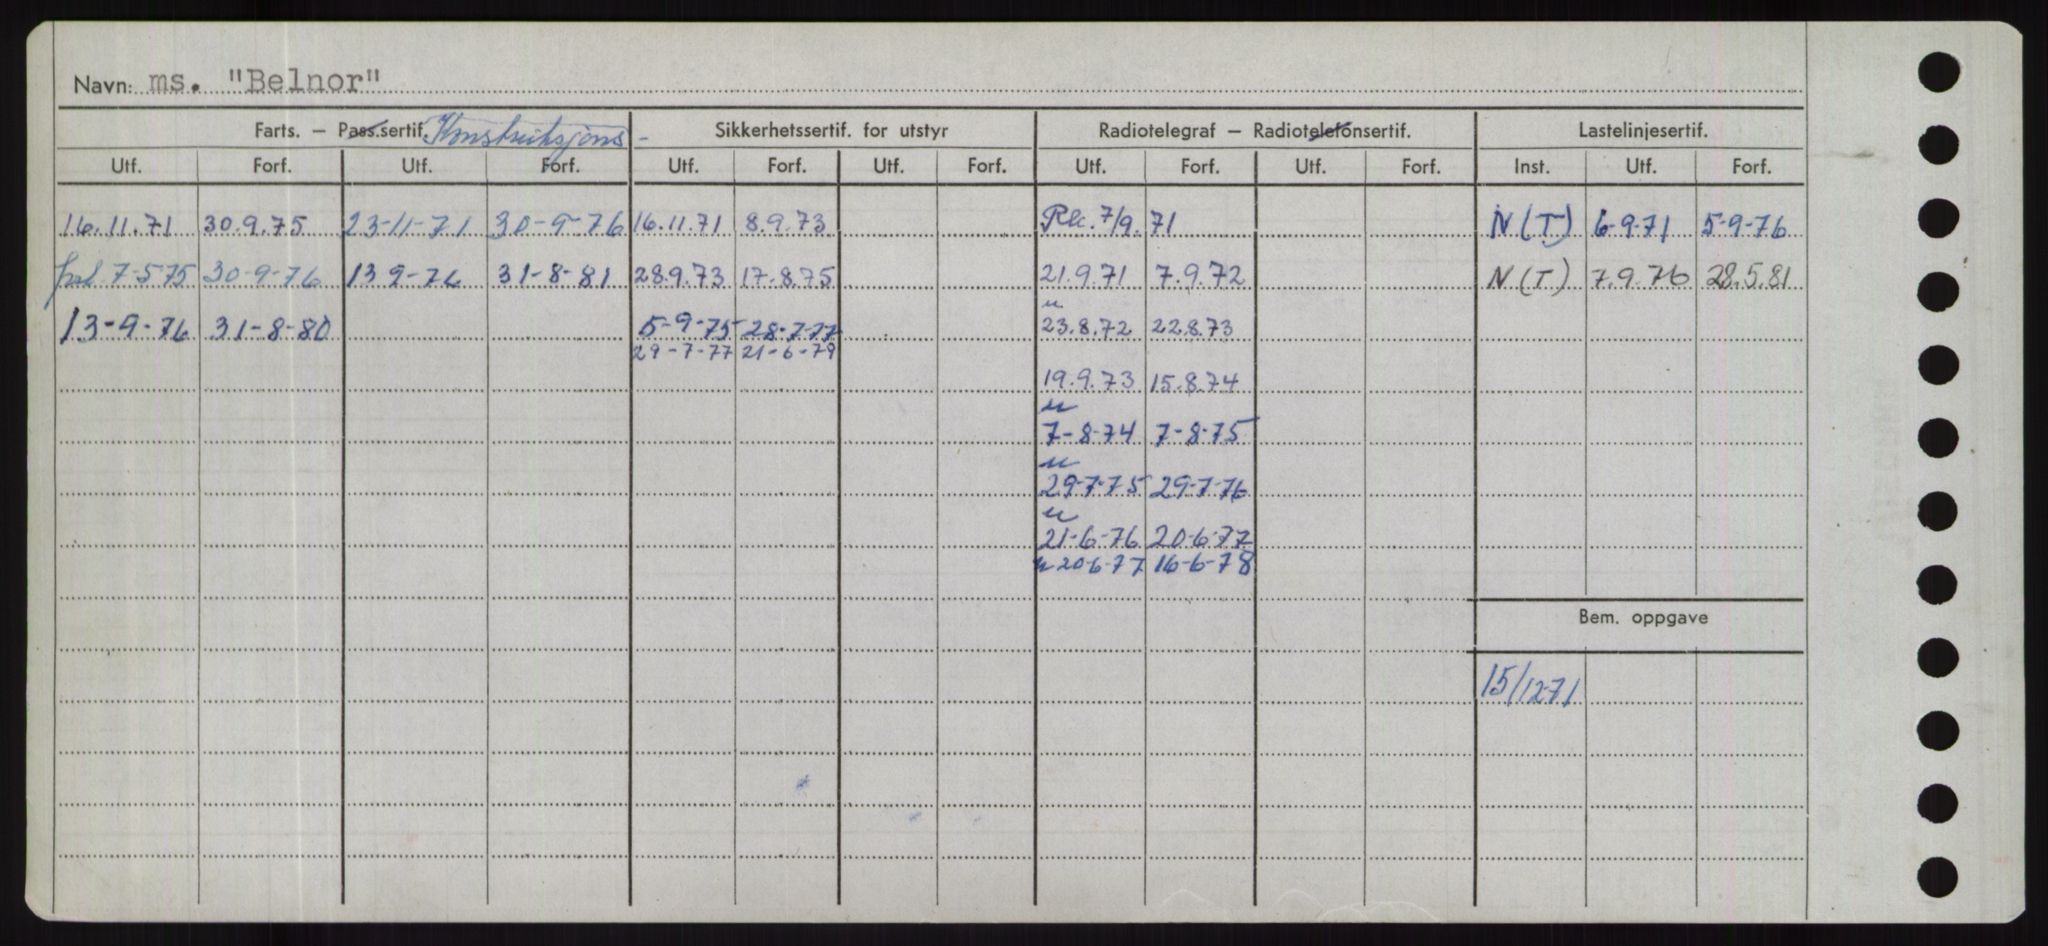 Navn: ms. "Belnor"
Farts. – Pass.sertif. Konstruksjons- Sikkerhetssertif. for utstyr Radiotelegraf – Radiotelefonsertif. Lastelinjesertif.
Utf. Forf. Utf. Forf. Utf. Forf. Utf. Forf. Utf. Forf. Utf. Forf. Inst. Utf. Forf.
16.11.71 30.9.75 23-11-71 30-9-76 16.11.71 8.9.73 7/9.71 N(T) 6-9.71 5-9-76
7-5 75 30-9-76 13 9-76 31-8-81 28.9.73 17.8.75 21.9.71 7.9.72 N(T) 7.9.76 28.5.81
13-9-76 31-8-80 5-9-75 28-7-77 23.8.72 22.8.73
29-7-77 21-6-79
19.9.73 15.8.74
7-8-74 7-8-75
29-7-75 29-7-76
21-6-76 20-6-77
20-6-77 16-6-78
Bem. oppgave
15/12-71